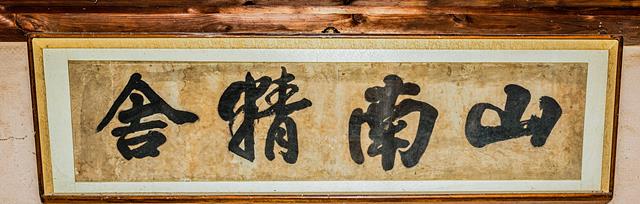 山南精舍